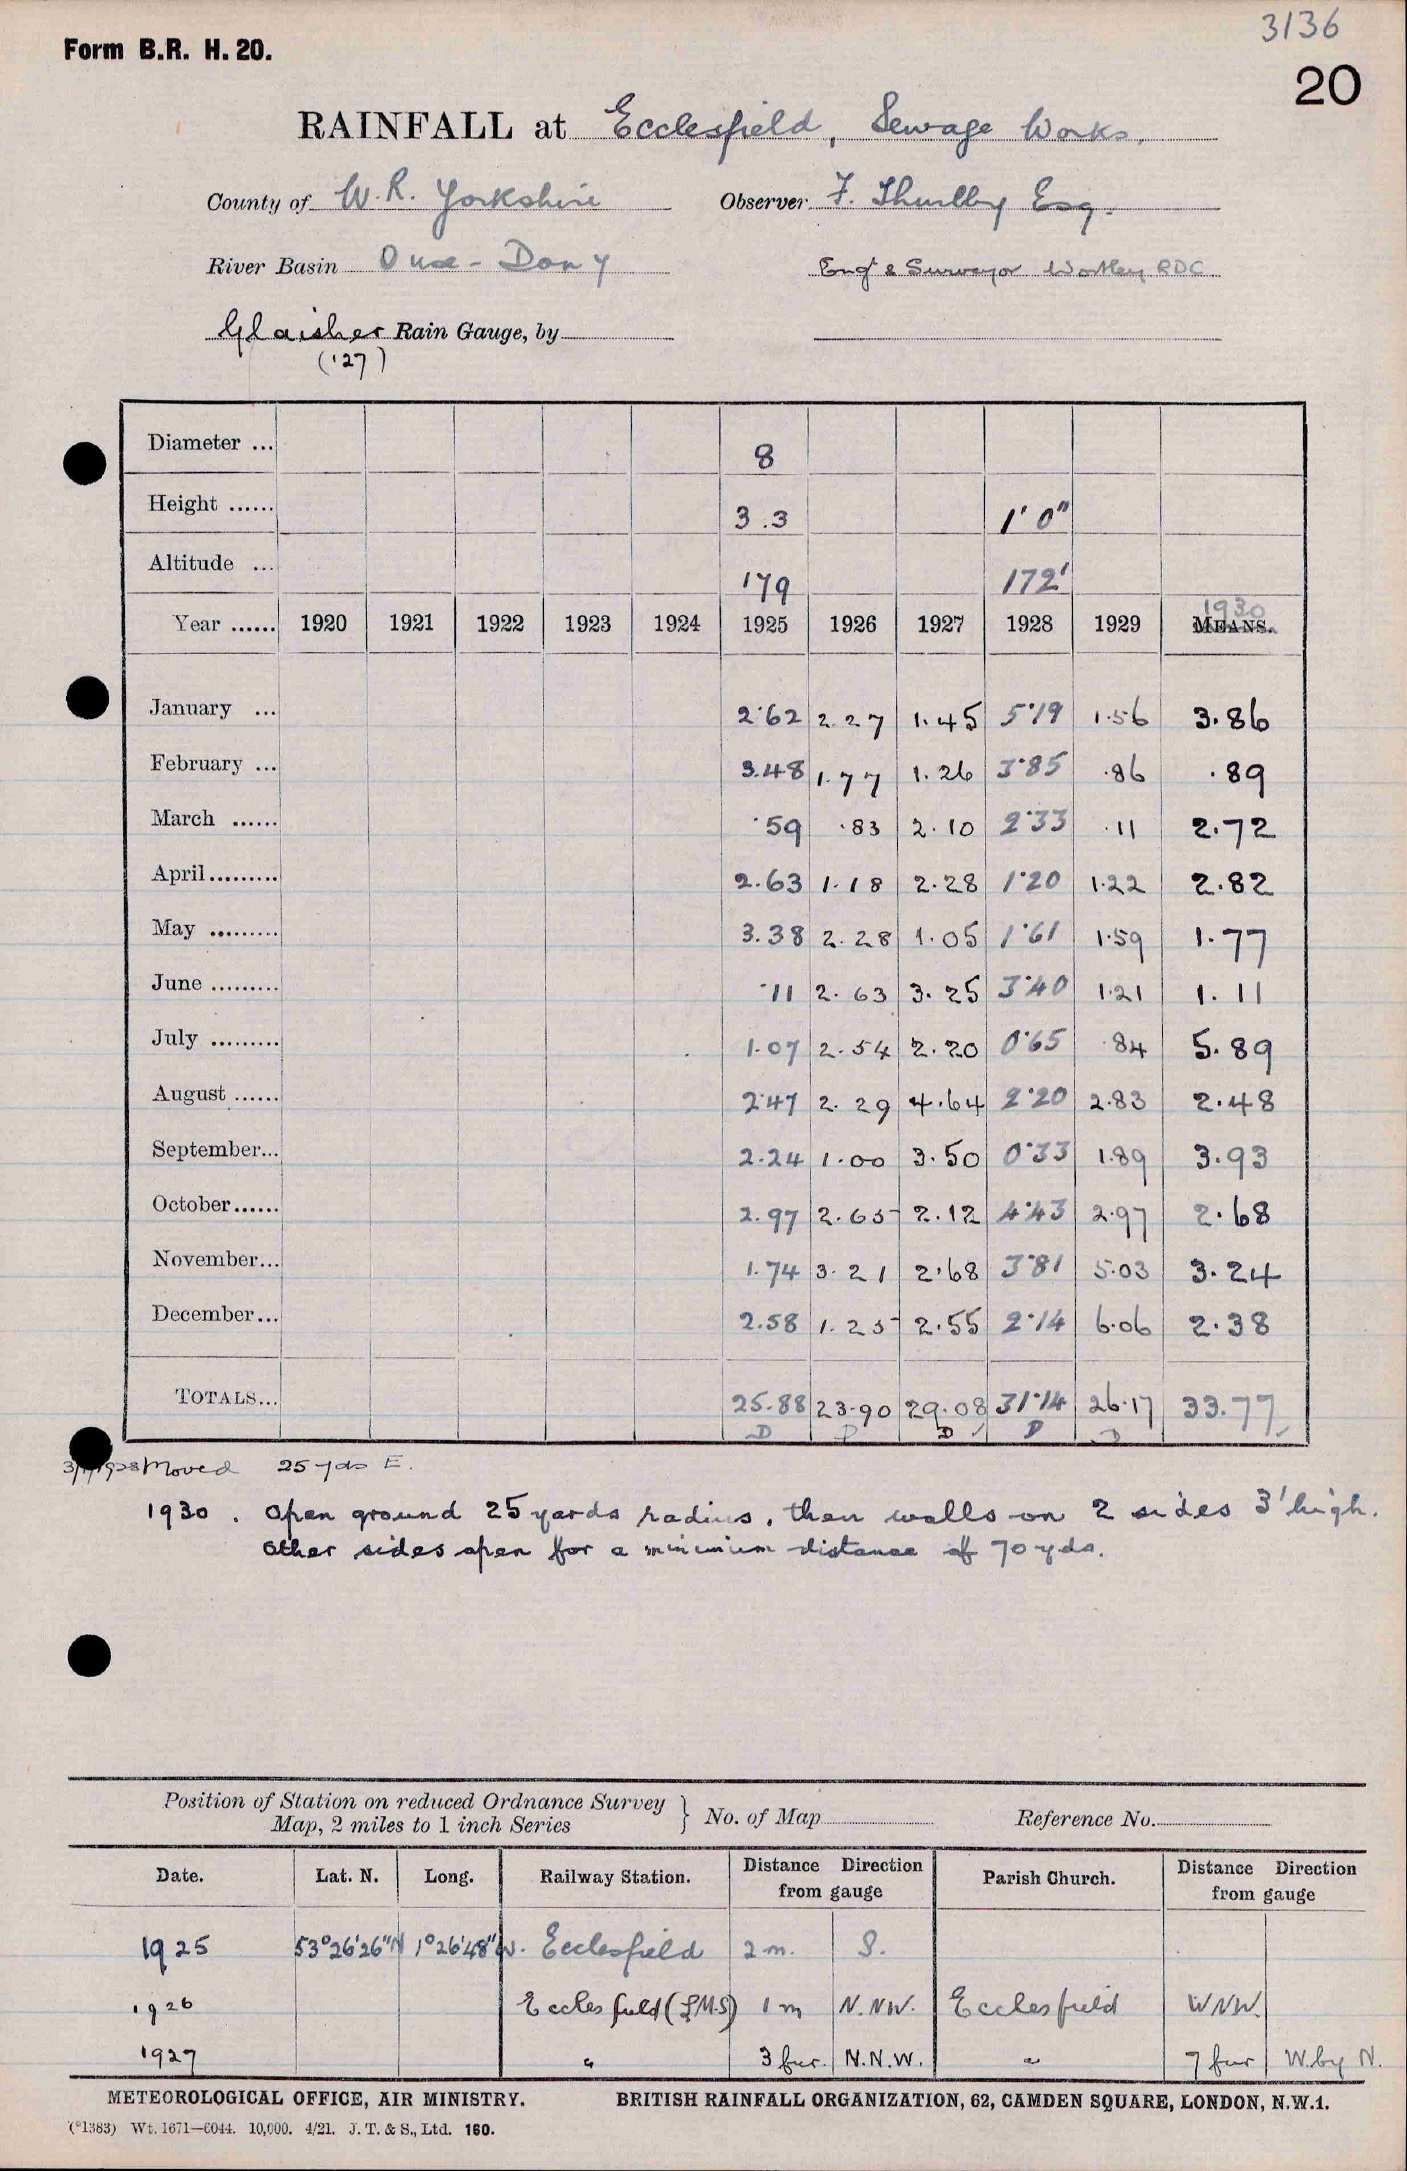 3136
Form B.R. H. 20.
20
RAINFALL at Ecclesfield, Sewage Works.
County of W. R. Yorkshire Observer F. Thurlby Esq.
River Basin Ouse - Don y Engr & Surveyor Wortley RDC
Glaisher Rain Gauge, by
('27)
Diameter ... 8
Height ...... 3.3 1' 0"
Altitude ... 179 172'
1930
Year ...... 1920 1921 1922 1923 1924 1925 1926 1927 1928 1929 MEANS.
January ... 2.62 2.27 1.45 5.19 1.56 3.86
February ... 3.48 1.77 1.26 3.85 .86 .89
March ...... .59 .83 2.10 2.33 .11 2.72
April......... 2.63 1.18 2.28 1.20 1.22 2.82
May ......... 3.38 2.28 1.05 1.61 1.59 1.77
June ......... .11 2.63 3.25 3.40 1.21 1.11
July ......... 1.07 2.54 2.20 0.65 .84 5.89
August ...... 2.47 2.29 4.64 2.20 2.83 2.48
September... 2.24 1.00 3.50 0.33 1.89 3.93
October...... 2.97 2.65 2.12 4.43 2.97 2.68
November... 1.74 3.21 2.68 3.81 5.03 3.24
December... 2.58 1.25 2.55 2.14 6.06 2.38
TOTALS... 25.88 23.90 29.08 31.14 26.17 33.77
D D D D D
Moved 25 yds E.
1930. Open ground 25 yards radius, then walls on 2 sides 3' high.
Other sides open for a minimum distance of 70 yds.
Position of Station on reduced Ordnance Survey
Map, 2 miles to 1 inch Series } No. of Map Reference No.
Date. Lat. N. Long. Railway Station. Distance Direction from gauge Parish Church. Distance Direction from gauge
1925 53°26'26"N 1°26'48"W. Ecclesfield 2 m. S.
1926 Ecclesfield (LMS) 1 m N.NW. Ecclesfield WNW.
1927 " 3 fur. N.N.W. " 7 fur W. by N.
METEOROLOGICAL OFFICE, AIR MINISTRY. BRITISH RAINFALL ORGANIZATION, 62, CAMDEN SQUARE, LONDON, N.W.1.
(*1383) Wt. 1671—6044. 10,000. 4/21. J. T. & S., Ltd. 160.